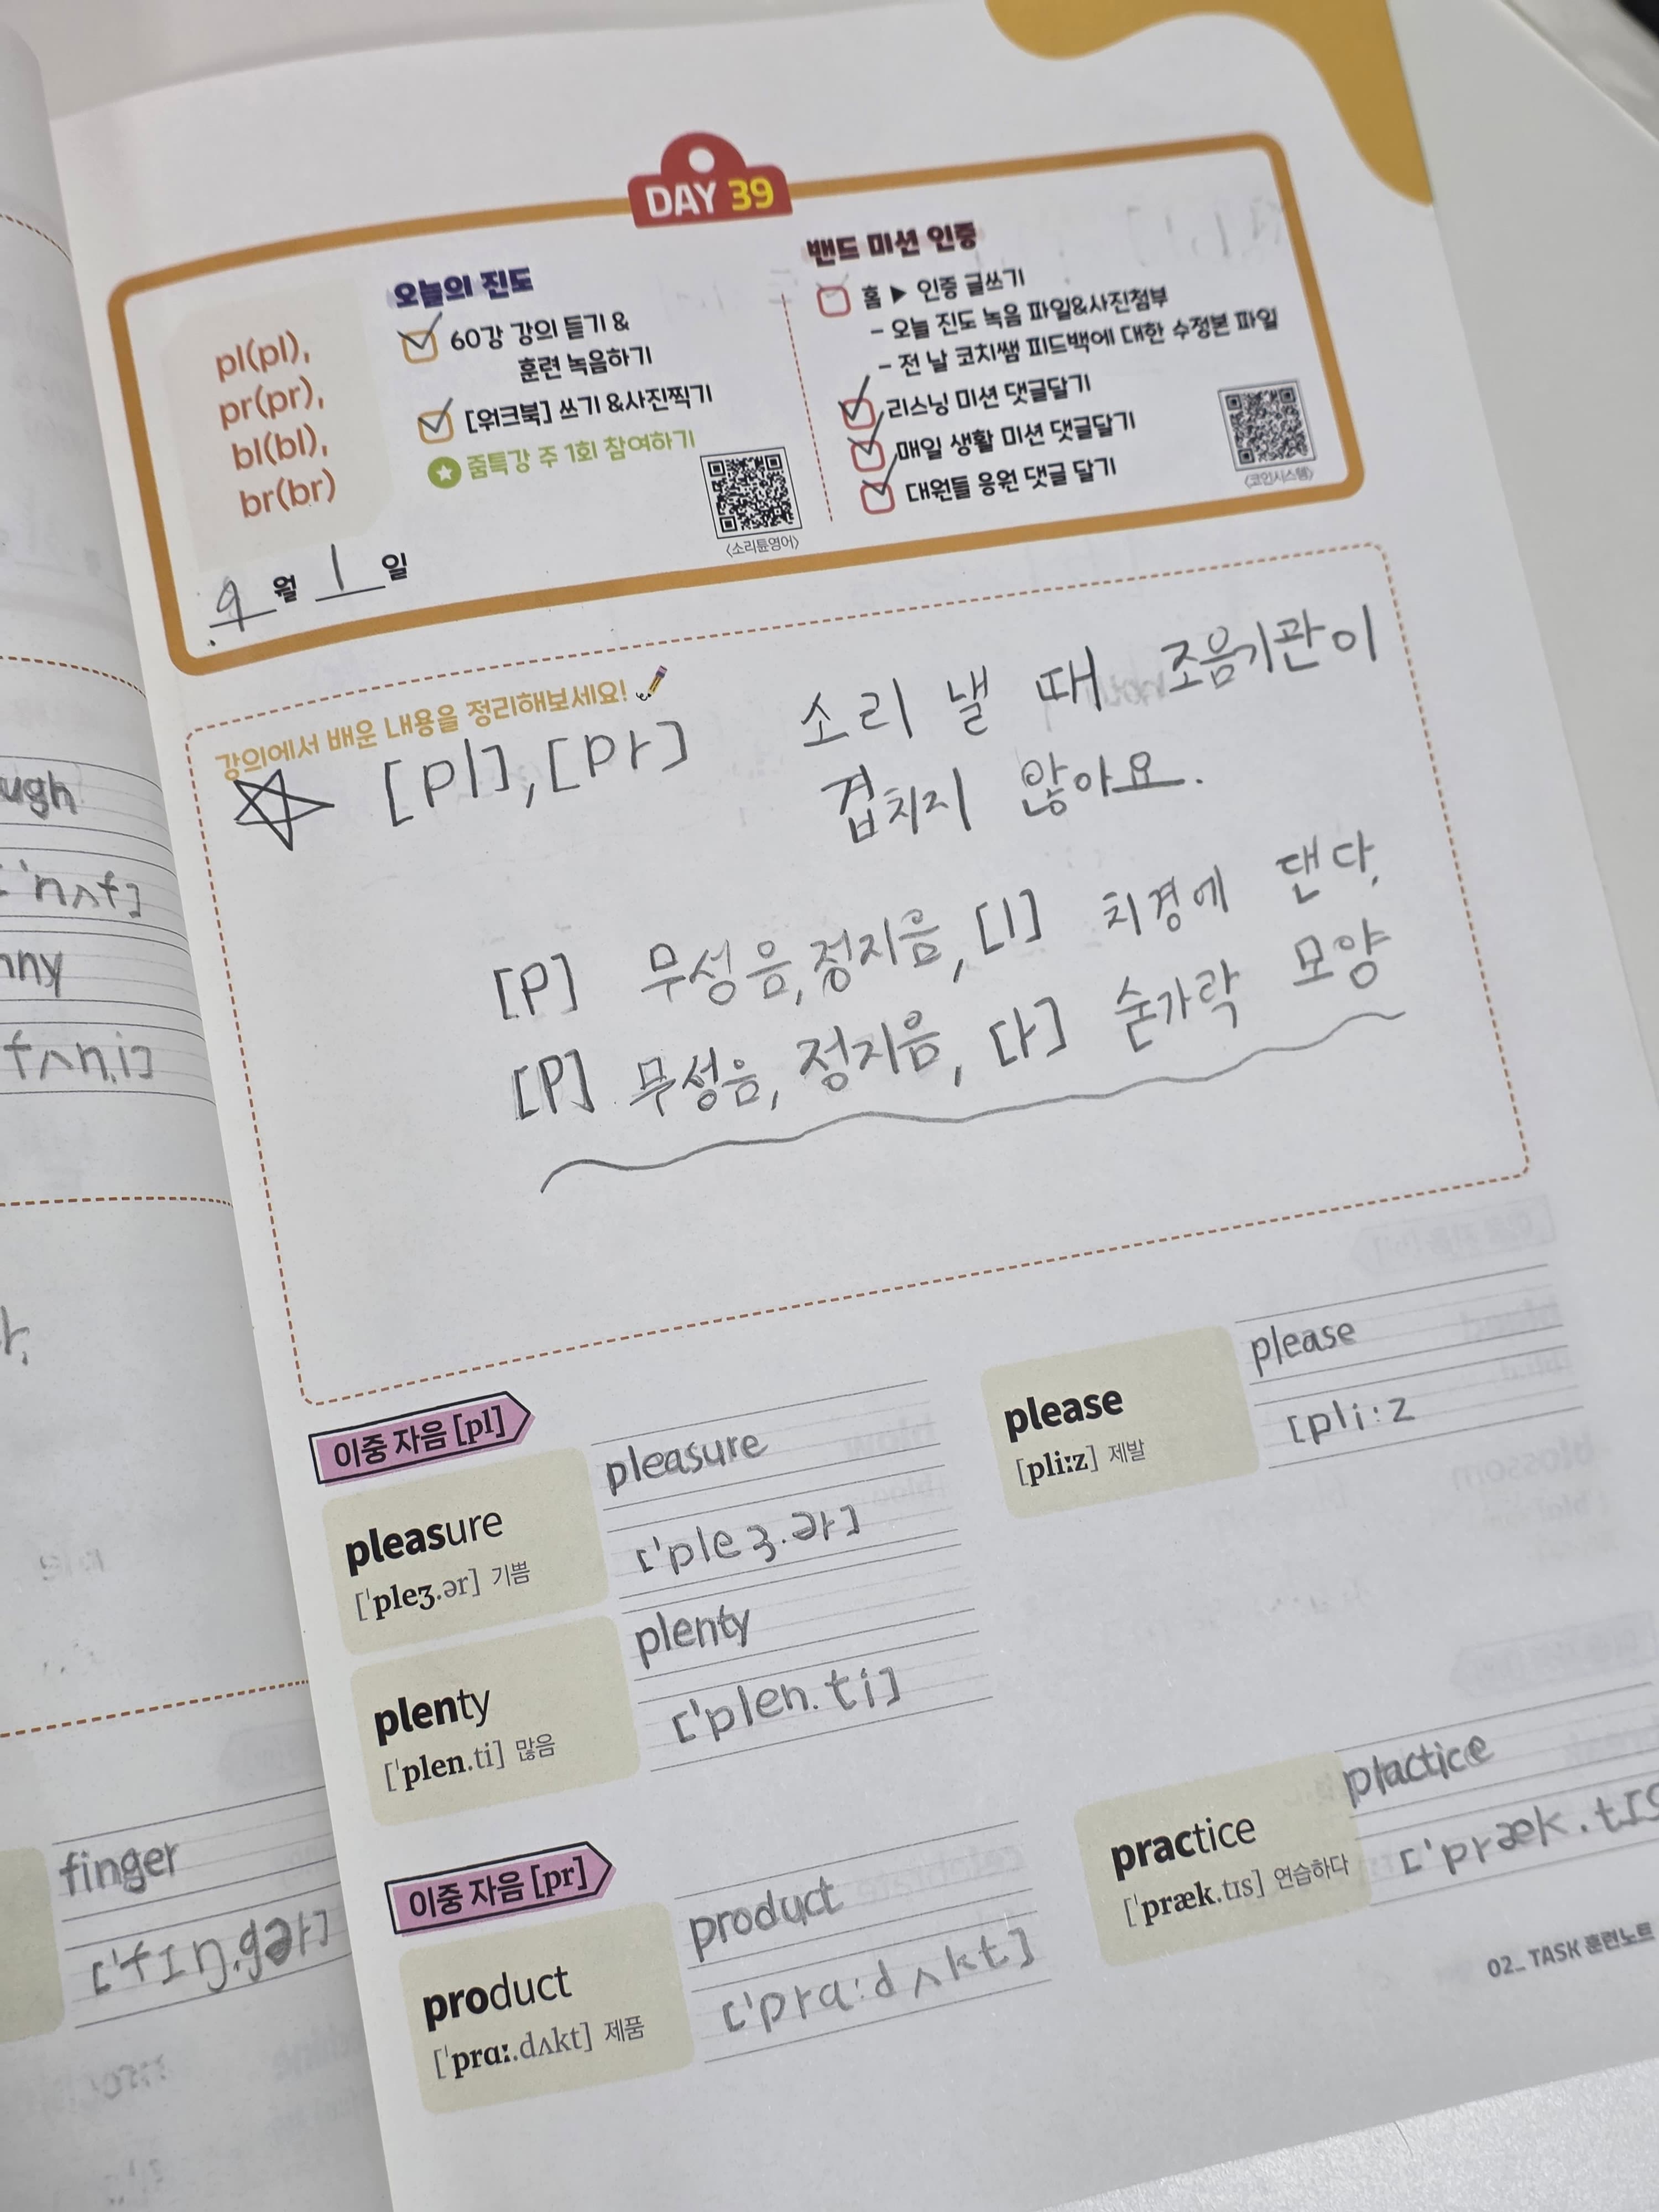 ugh
['nʌf]
nny
fʌn.i]
finger
['fɪŋ.gər]
DAY 39
pl(pl),
pr(pr),
bl(bl),
br(br)
9월 1일
오늘의 진도
60강 강의 듣기 &
훈련 녹음하기
[워크북] 쓰기 &사진찍기
줌특강 주 1회 참여하기
<소리튠영어>
밴드 미션 인증
홈 ▶ 인증 글쓰기
- 오늘 진도 녹음 파일&사진첨부
- 전 날 코치쌤 피드백에 대한 수정본 파일
리스닝 미션 댓글달기
매일 생활 미션 댓글달기
대원들 응원 댓글 달기
<코인시스템>
강의에서 배운 내용을 정리해보세요!
[pl],[pr] 소리 낼 때 조음기관이
겹치지 않아요.
[P] 무성음,정지음, [l] 치경에 댄다.
[P] 무성음, 정지음, [r] 숟가락 모양
이중 자음 [pl]
pleasure
['pleʒ.ər] 기쁨
pleasure
['pleʒ.ər]
please
[pliːz] 제발
please
[pli:z
plenty
['plen.ti] 많음
plenty
['plen.ti]
이중 자음 [pr]
product
['prɑː.dʌkt] 제품
product
['prɑ:dʌkt]
practice
['præk.tɪs] 연습하다
plactice
['præk.tɪs
02_ TASK 훈련노트